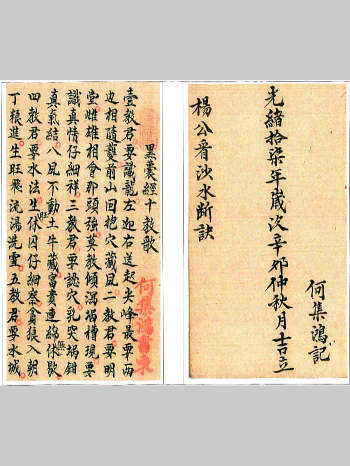 光緒拾柒年歲次辛卯仲秋月吉立
何集鴻記
楊公看沙水断訣
黑囊經十教歌
壹教君要識龍左迎右送起尖峰最要两
边相隨護前山回抱穴藏風二教君要明
堂雌雄相會那頭強莫教傾瀉堝槽現要
識真情仔細祥三教君要認穴乳突堝鉗
真氣結八風不動土牛藏富貴連綿休歇
四教君要水法生休囚仔細察禽猿入朝
丁粮進生旺飛流滿洗雪五教君要水城
何集鴻